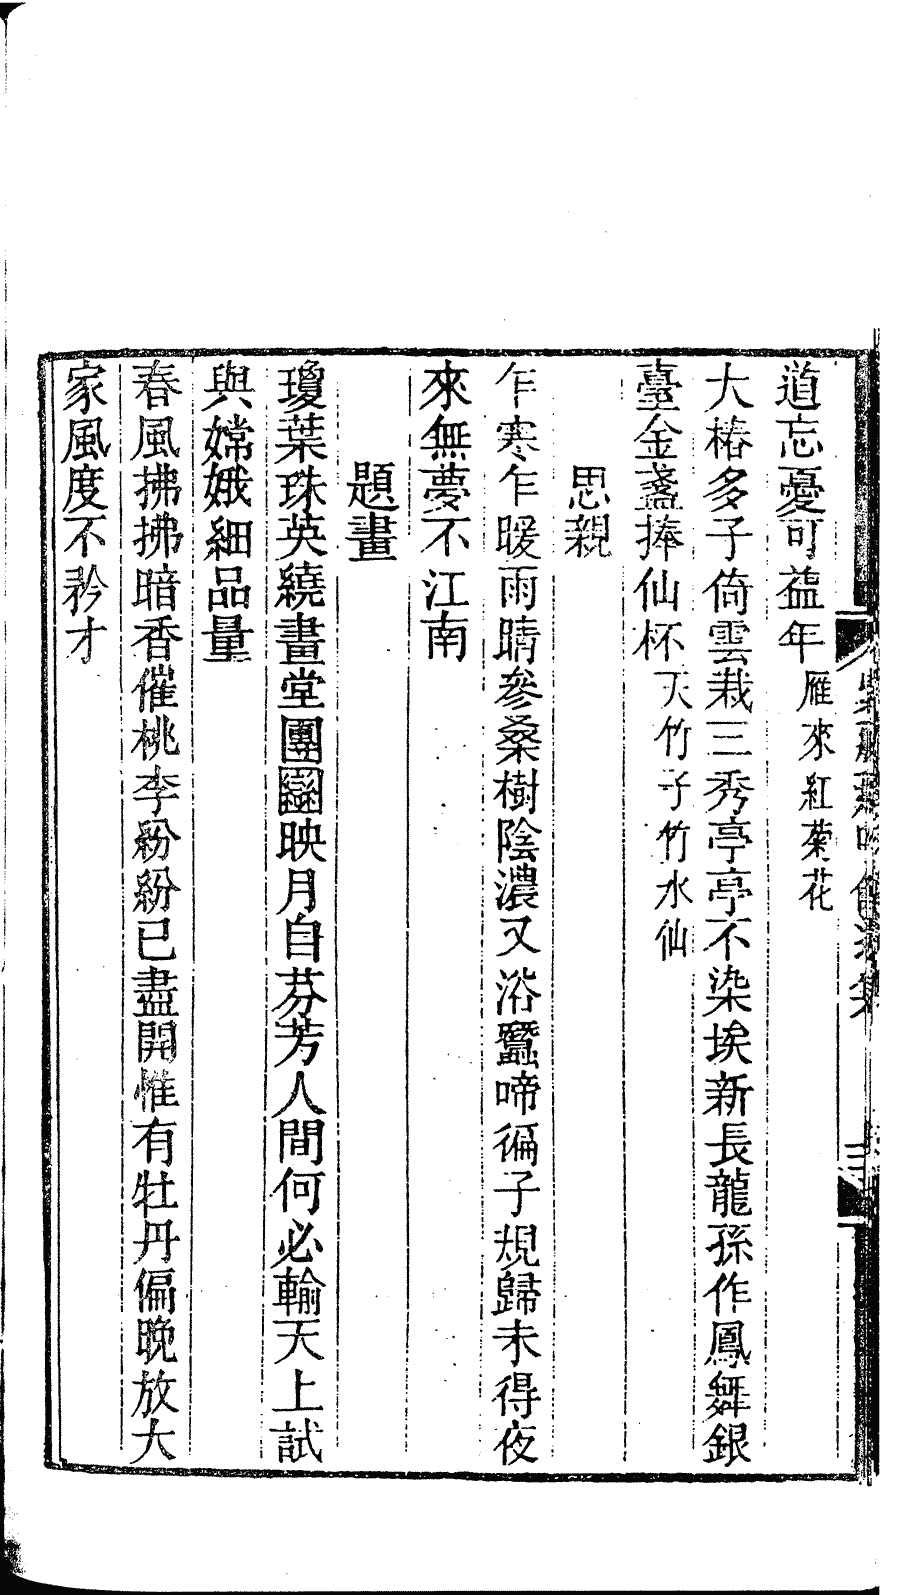 道忘憂可益年雁來紅菊花
大椿多子倚雲栽三秀亭亭不染埃新長龍孫作鳳舞銀
臺金盞捧仙杯天竹子竹水仙
思親
乍寒乍暖雨晴參桑樹陰濃又浴蠶啼徧子規歸未得夜
來無夢不江南
題畫
瓊葉珠英繞畫堂團圝映月自芬芳人間何必輸天上試
與嫦娥細品量
春風拂拂暗香催桃李紛紛已盡開惟有牡丹偏晚放大
家風度不矜才